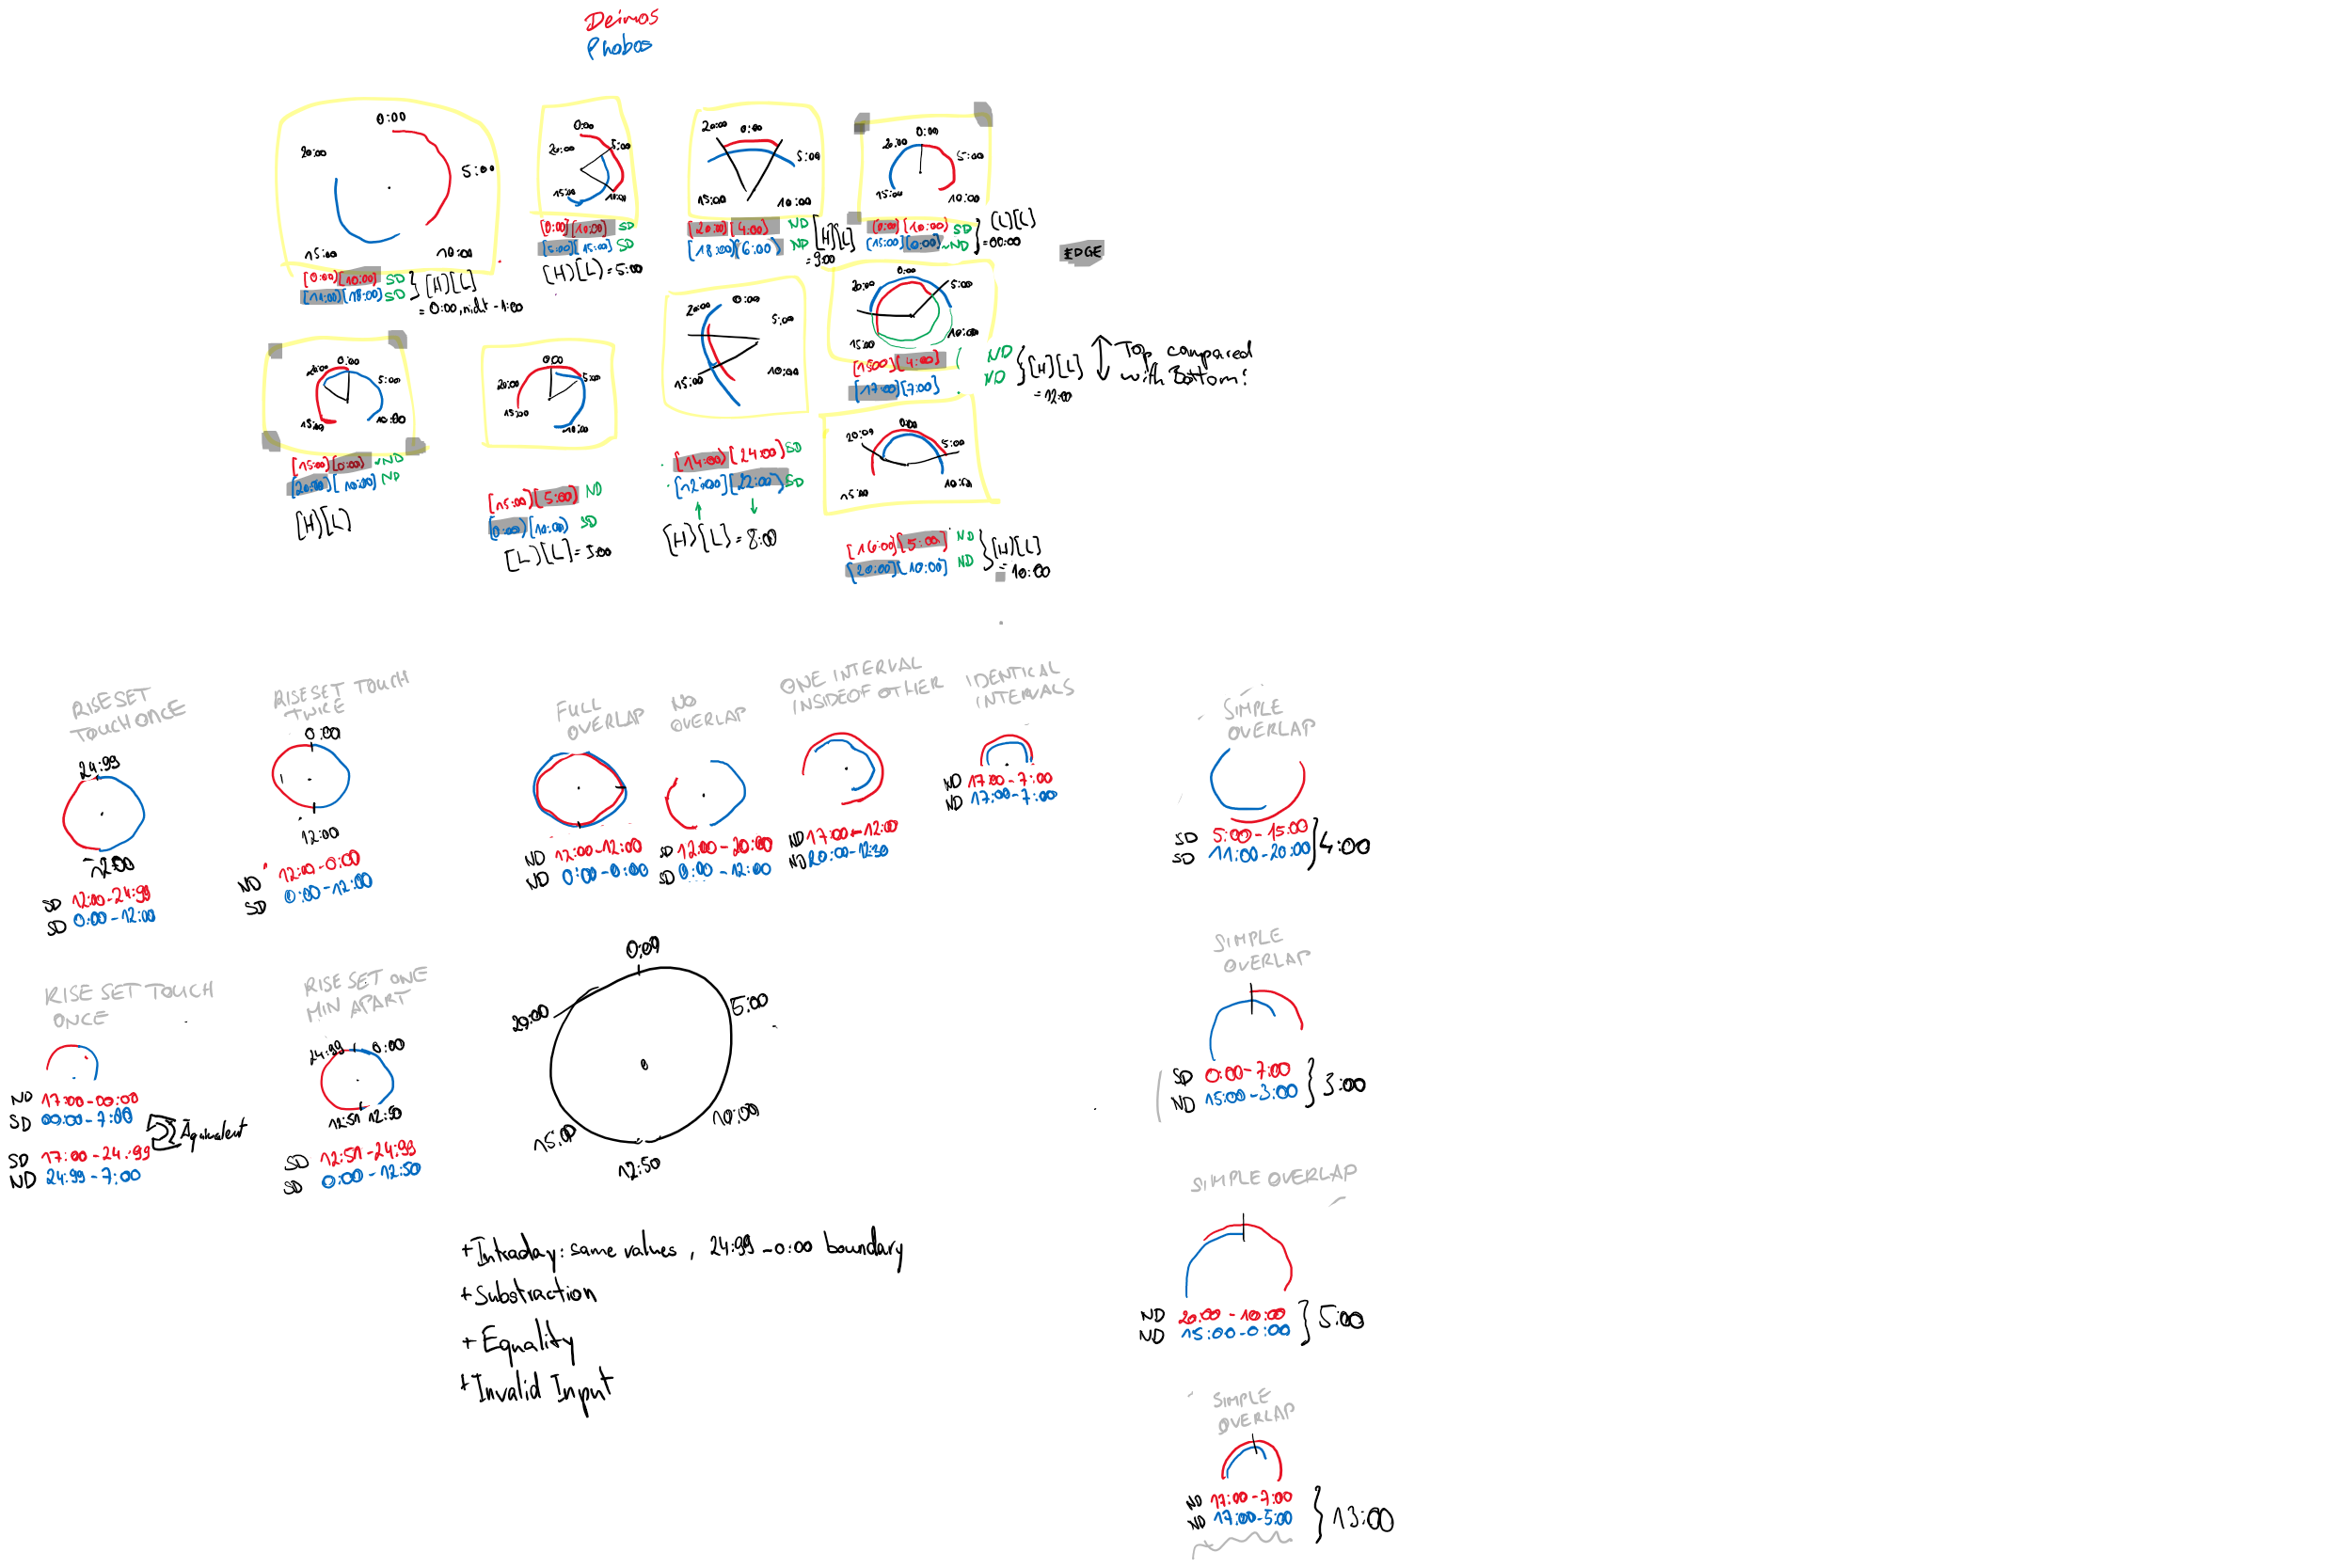 Deimos
Phobos
0:00
20:00
5:00
15:00
10:00
[0:00][10:00] SD
[11:00][18:00] SD
[H][L]
= 0:00, nicht -1:00
0:00
20:00
5:00
15:00
10:00
[0:00][10:00] SD
[5:00][15:00] SD
[H][L] = 5:00
20:00
0:00
5:00
15:00
10:00
[20:00][4:00] ND
[18:00][6:00] ND
[H][L]
= 9:00
0:00
20:00
5:00
15:00
10:00
[0:00][10:00] SD
[15:00][0:00] ~ND
[L][L]
= 00:00
EDGE
0:00
20:00
5:00
15:00
10:00
[15:00][0:00] ~ND
[20:00][10:00] ND
[H][L]
0:00
20:00
5:00
15:00
10:00
[15:00][5:00] ND
[0:00][10:00] SD
[L][L] = 5:00
20:00
0:00
5:00
15:00
10:00
[14:00][24:00] SD
[12:00][22:00] SD
[H][L] = 8:00
0:00
20:00
5:00
15:00
10:00
[1500][4:00] ND
[17:00][7:00] ND
[H][L]
= 12:00
Top compared
with Bottom!
20:00
0:00
5:00
15:00
10:00
[16:00][5:00] ND
[20:00][10:00] ND
[H][L]
= 10:00
RISE SET
TOUCH ONCE
24:99
12:00
SD 12:00-24:99
SD 0:00-12:00
RISE SET TOUCH
TWICE
0:00
12:00
ND 12:00-0:00
SD 0:00-12:00
FULL
OVERLAP
ND 12:00-12:00
ND 0:00-0:00
NO
OVERLAP
SD 12:00-20:00
SD 0:00-12:00
ONE INTERVAL
INSIDEOF OTHER
ND 17:00-12:00
ND 20:00-12:30
IDENTICAL
INTERVALS
ND 17:00-7:00
ND 17:00-7:00
SIMPLE
OVERLAP
SD 5:00-15:00
SD 11:00-20:00
4:00
RISE SET TOUCH
ONCE
ND 17:00-00:00
SD 00:00-7:00
SD 17:00-24:99
ND 24:99-7:00
Äquivalent
RISE SET ONE
MIN APART
24:99 0:00
12:51 12:50
SD 12:51-24:99
SD 0:00-12:50
0:00
20:00
5:00
15:00
10:00
12:50
SIMPLE
OVERLAP
SD 0:00-7:00
ND 15:00-3:00
3:00
SIMPLE OVERLAP
ND 20:00-10:00
ND 15:00-0:00
5:00
SIMPLE
OVERLAP
ND 17:00-7:00
ND 17:00-5:00
13:00
+Intraday: same values, 24:99-0:00 boundary
+Substraction
+Equality
+Invalid Input